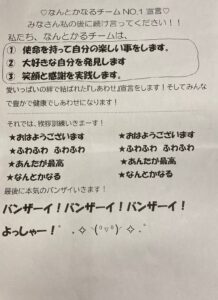 ♡なんとかなるチーム NO.1 宣言♡
みなさん私の後に続け言ってください！！
私たち、なんとかるチームは、
① 使命を持って自分の楽しい事をします。
② 大好きな自分を発見します
③ 笑顔と感謝を実践します。
愛いっぱいの絆で結ばれた『しあわせ』宣言をします！そしてみんな
で豊かで健康でしあわせになります！
それでは、挨拶訓練いきまーす！
★おはようございます ★おはようございます
★ふわふわ ふわふわ ★ふわふわ ふわふわ
★あんたが最高 ★あんたが最高
★なんとかなる ★なんとかなる
最後に本気のバンザイいきます！
バンザーイ！バンザーイ！バンザーイ！
よっしゃー！ﾟ.✧ ヾ(°▽°)ﾉ ✧.ﾟ